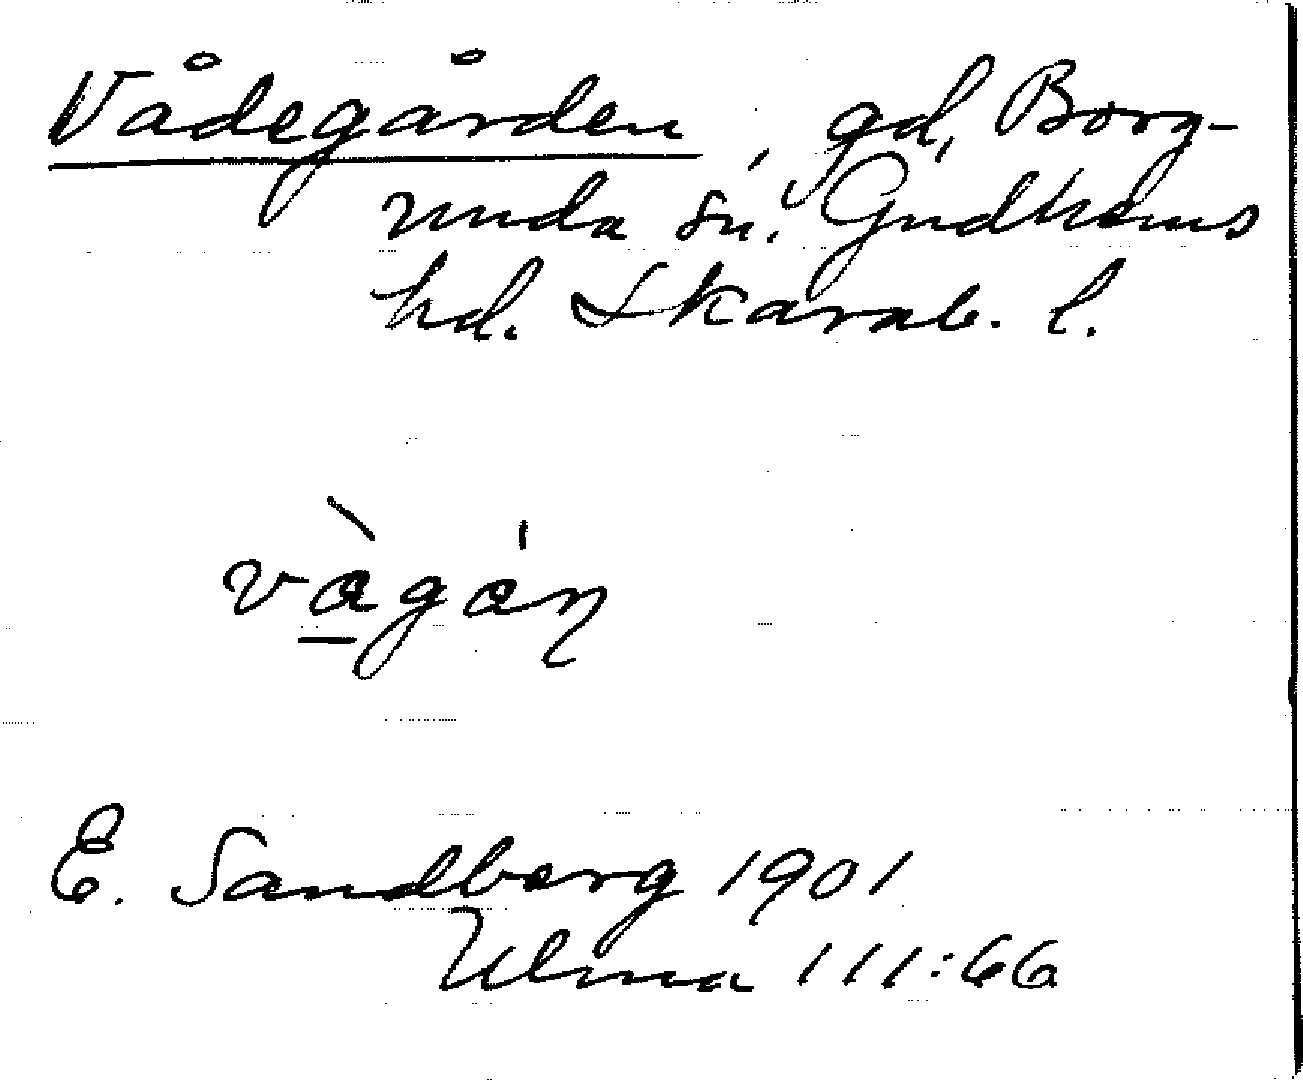 Vådegården, gd, Borg-
unda sn. Gudhems
hd. Skarab. l.
vàgáņ
E. Sandberg 1901
Ulma 111:66